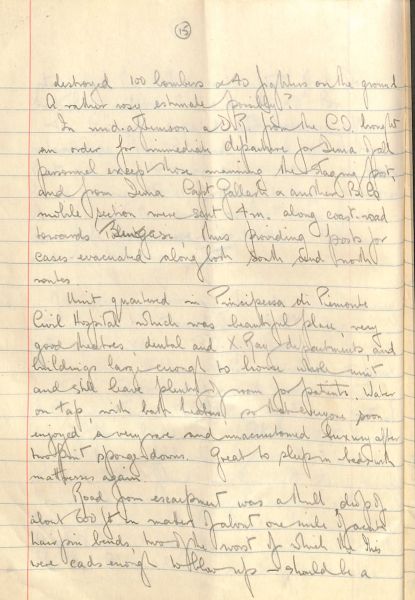 15
destroyed 100 bombers & 40 fighters on the ground
A rather rosy estimate possibly?
In mid-afternoon a D.R. from the C.O. brought
an order for immediate departure for Derna of all
personnel except those manning the staging post,
and from Derna Capt. & another
mobile section were sent 4 m. along coast-road
towards Benghasi, thus providing posts for
cases evacuated along both south and north
routes
Unit quartered in Principessa di Piemonte
Civil Hospital which was beautiful place, very
good theatres, dental and X.Ray departments and
buildings large enough to house whole unit
and still leave plenty of room for patients. Water
on tap, with bath heaters, so that everyone soon
enjoyed a very rare and unaccustomed luxury after
two pint sponge-downs. Great to sleep in beds with
mattresses again.
Road from escarpment was a thrill, drop of
about 600 ft in matter of about one mile, of acute
hair pin bends, two of the worst of which the
were cads enough to blow up. I should be a